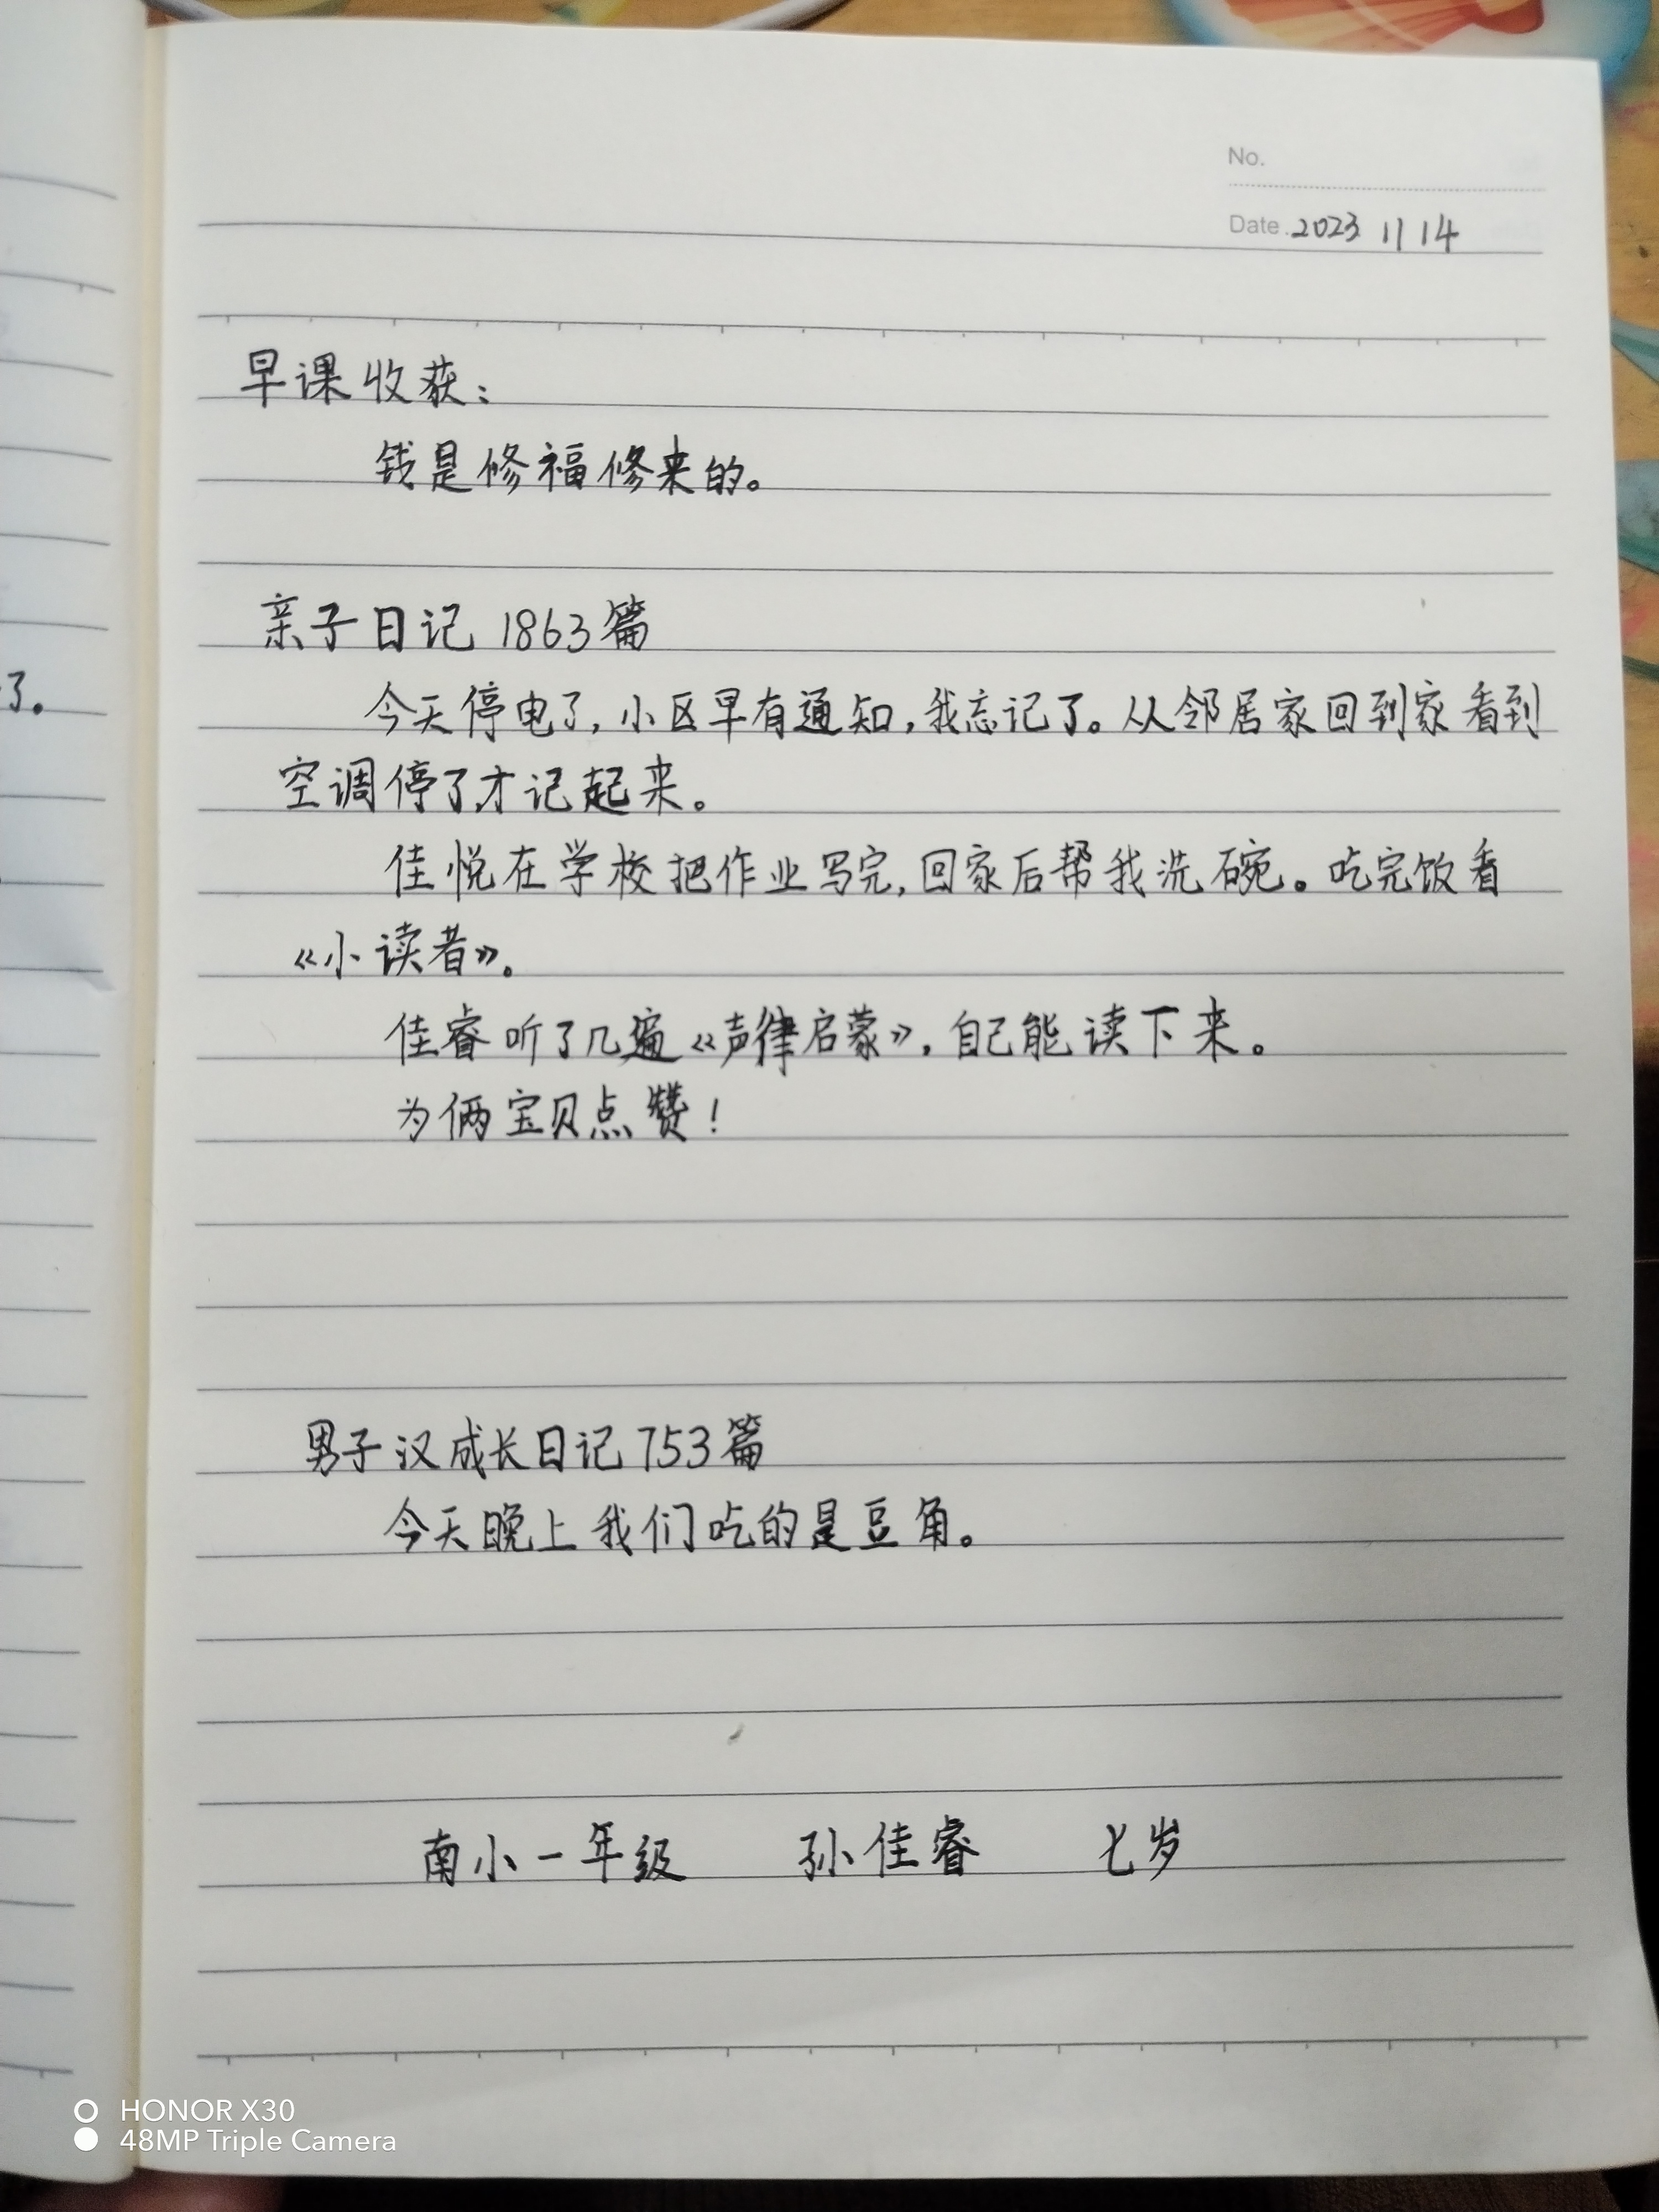 No.
Date. 2023 11 14
早课收获：
钱是修福修来的。
亲子日记 1863篇
了。
今天停电了，小区早有通知，我忘记了。从邻居家回到家看到
空调停了，才记起来。
佳悦在学校把作业写完，回家后帮我洗碗。吃完饭看
《小读者》。
佳睿听了几遍《声律启蒙》，自己能读下来。
为俩宝贝点赞！
男子汉成长日记753篇
今天晚上我们吃的是豆角。
南小一年级 孙佳睿 七岁
HONOR X30
48MP Triple Camera